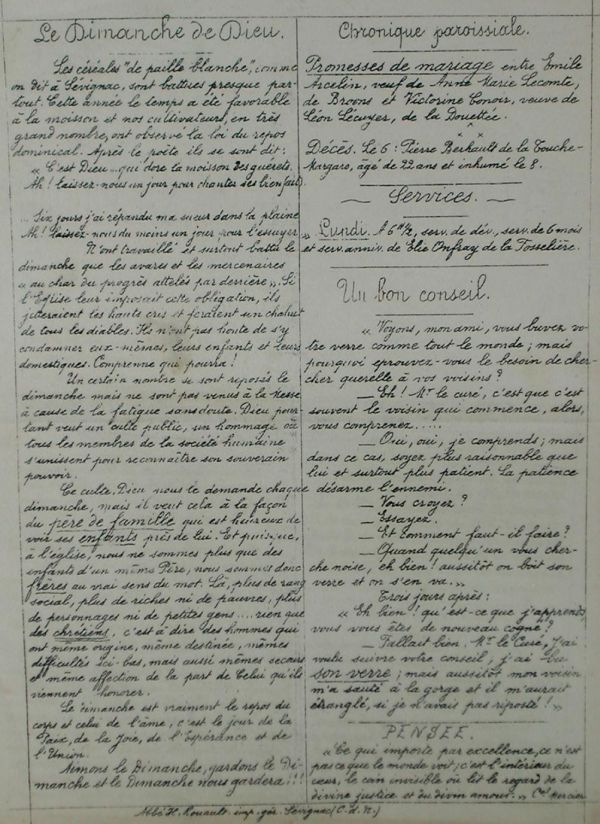 Le Dimanche de Dieu.
Les céréales "de paille blanche", comme
on dit à Sévignac, sont battues presque par-
tout. Cette année le temps a été favorable
à la moisson et nos cultivateurs, en très
grand nombre, ont observé la loi du repos
dominical. Après le poète ils se sont dit:
« C'est Dieu... qui dore la moisson des guérets.
Ah! laissez-nous un jour pour chanter ses bienfaits.
... Six jours j'ai répandu ma sueur dans la plaine
Ah! laissez-nous du moins un jour pour l'essuyer
N'ont travaillé et surtout battu le
dimanche que les avares et les mercenaires
« au char du progrès attelés par derrière ». Si
l'Eglise leur imposait cette obligation, ils
jetteraient les hauts cris et feraient un chahut
de tous les diables. Ils n'ont pas honte de s'y
condamner eux-mêmes, leurs enfants et leurs
domestiques. Comprenne qui pourra!
Un certain nombre se sont reposés le
dimanche mais ne sont pas venus à la Messe
à cause de la fatigue sans doute. Dieu pour-
tant veut un culte public, un hommage où
tous les membres de la société humaine
s'unissent pour reconnaître son souverain
pouvoir.
Ce culte, Dieu nous le demande chaque
dimanche, mais il veut cela à la façon
du père de famille qui est heureux de
voir ses enfants près de lui. Et puisque,
à l'église, nous ne sommes plus que des
enfants d'un même Père, nous sommes donc
frères au vrai sens du mot. Là, plus de rang
social, plus de riches ni de pauvres, plus
de personnages ni de petites gens.... rien que
des chrétiens, c'est à dire des hommes qui
ont même origine, même destinée, mêmes
difficultés ici-bas, mais aussi mêmes secours
et même affection de la part de Celui qu'ils
viennent honorer.
Le dimanche est vraiment le repos du
corps et celui de l'âme, c'est le jour de la
Paix, de la Joie, de l'Espérance et de
l'Union.
Aimons le Dimanche, gardons le Di-
manche et le Dimanche nous gardera!!!
Chronique paroissiale.
Promesses de mariage entre Emile
Arcelin, veuf de Anne Marie Lecomte,
de Broons et Victorine Tonoir, veuve de
Léon Lécuyer, de la Douettée.
Décès. Le 6: Pierre Berhault de la Touche-
Margaro, âgé de 22 ans et inhumé le 8.
Services.
Lundi. A 6 h ½, serv. de dév., serv. de 6 mois
et serv. anniv. de Elie Onfray de la Tosselière.
Un bon conseil.
« Voyons, mon ami, vous buvez vo-
tre verre comme tout le monde; mais
pourquoi éprouvez-vous le besoin de cher-
cher querelle à vos voisins?
_ Eh! Mr le curé, c'est que c'est
souvent le voisin qui commence, alors,
vous comprenez.....
_ Oui, oui, je comprends; mais
dans ce cas, soyez plus raisonnable que
lui et surtout plus patient. La patience
désarme l'ennemi.
_ Vous croyez?
_ Essayez.
_ Et comment faut-il faire?
_ Quand quelqu'un vous cher-
che noise, eh bien! aussitôt on boit son
verre et on s'en va..»
Trois jours après:
« Eh bien! qu'est-ce que j'apprends,
vous vous êtes de nouveau cogné?
_ Fallait bien, Mr. le Curé, j'ai
voulu suivre votre conseil, j'ai bu
son verre; mais aussitôt mon voisin
m'a sauté à la gorge et il m'aurait
étranglé, si je n'avais pas riposté!»
PENSEE.
« Ce qui importe par excellence, ce n'est
pas ce que le monde voit; c'est l'intérieur du
cœur, le coin invisible où lit le regard de la
divine justice et du divin amour.» Cal Mercier
Abbé H. Rouault. imp. gér. Sévignac (C.d.N.)